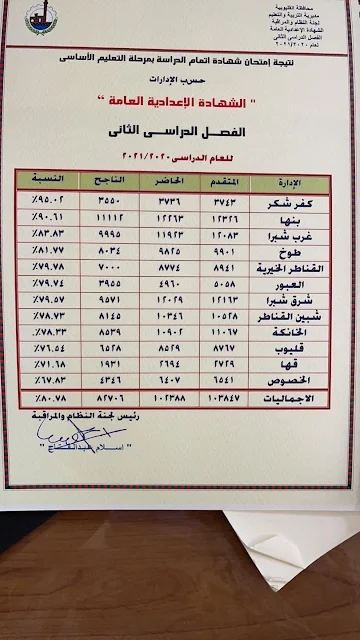 محافظة القليوبية
مديرية التربية والتعليم
لجنة النظام والمراقبة
الشهادة الإعدادية العامة
الفصل الدراسى الثانى
لعام ٢٠٢١/٢٠٢٠
نتيجة إمتحان شهادة اتمام الدراسة بمرحلة التعليم الأساسى
حسب الإدارات
" الشهادة الإعدادية العامة "
الفصل الدراسى الثانى
للعام الدراسى ٢٠٢١/٢٠٢٠
الإدارة المتقدم الحاضر الناجح النسبة
كفر شكر ٣٧٤٣ ٣٧٣٦ ٣٥٥٠ ٪٩٥.٠٢
بنها ١٢٣٢٦ ١٢٢٦٣ ١١١١٢ ٪٩٠.٦١
غرب شبرا ١٢٠٨٣ ١١٩٢٣ ٩٩٩٥ ٪٨٣.٨٣
طوخ ٩٩٠١ ٩٨٢٥ ٨٠٣٤ ٪٨١.٧٧
القناطر الخيرية ٨٩٤١ ٨٧٧٤ ٧٠٠٠ ٪٧٩.٧٨
العبور ٥٠٥٨ ٤٩٦٠ ٣٩٥٥ ٪٧٩.٧٤
شرق شبرا ١٢١٦٣ ١٢٠٢٩ ٩٥٧١ ٪٧٩.٥٧
شبين القناطر ١٠٥٢٨ ١٠٣٤٦ ٨١٤٥ ٪٧٨.٧٣
الخانكة ١١٠٦٧ ١٠٩٠٢ ٨٥٣٩ ٪٧٨.٣٣
قليوب ٨٧٦٧ ٨٥٢٩ ٦٥٢٨ ٪٧٦.٥٤
قها ٢٧٢٩ ٢٦٩٤ ١٩٣١ ٪٧١.٦٨
الخصوص ٦٥٤١ ٦٤٠٧ ٤٣٤٦ ٪٦٧.٨٣
الاجماليات ١٠٣٨٤٧ ١٠٢٣٨٨ ٨٢٧٠٦ ٪٨٠.٧٨
رئيس لجنة النظام والمراقبة
" اسلام عبدالفتاح "